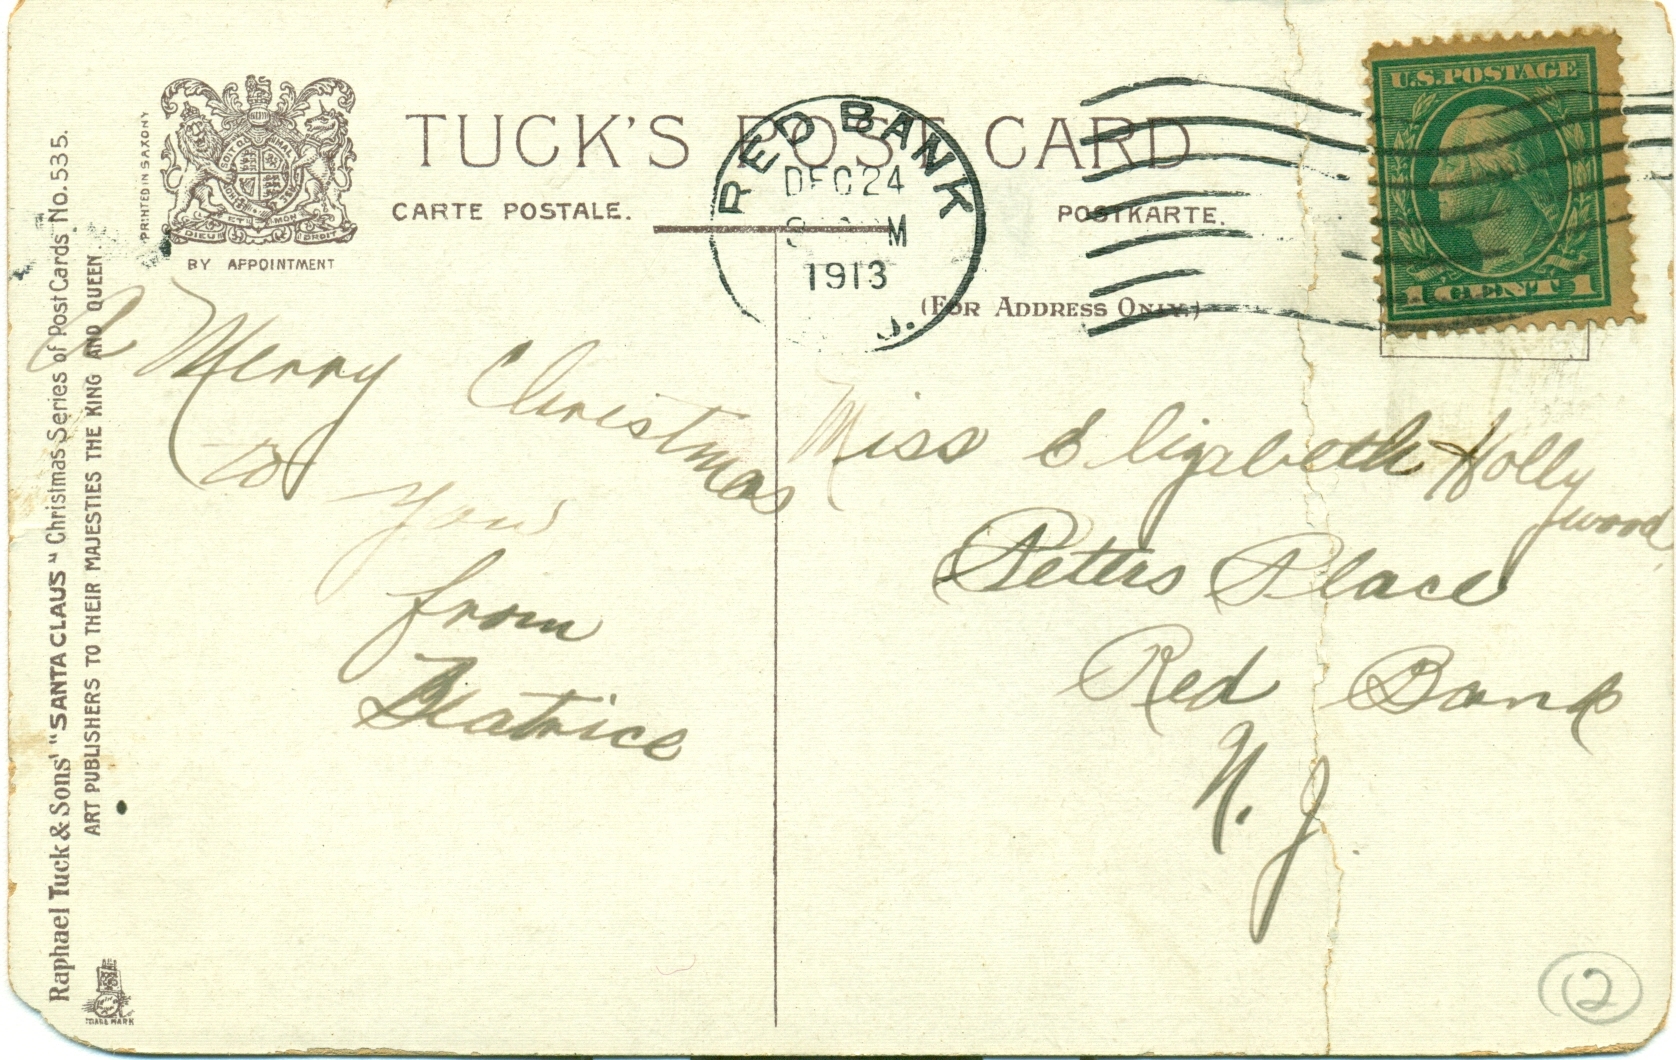 TUCK'S POST CARD
CARTE POSTALE.
POSTKARTE.
PRINTED IN SAXONY
BY APPOINTMENT
DIEU ET MON DROIT
(FOR ADDRESS ONLY.)
RED BANK
DEC 24
M
1913
J.
U.S. POSTAGE
1 CENT 1
Raphael Tuck & Sons' "SANTA CLAUS" Christmas Series of Post Cards No. 535.
ART PUBLISHERS TO THEIR MAJESTIES THE KING AND QUEEN
TRADE MARK
A Merry Christmas
to you
from
Beatrice
Miss Elizabeth Holly
wood
Peters Place
Red Bank
N. J
2